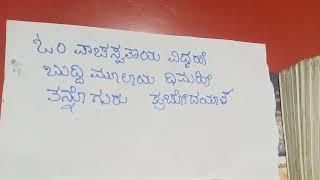 ಓಂ ವಾಚಸ್ಪತಾಯ ವಿದ್ಮಹೇ
ಬುದ್ದಿ ಮೂಲಾಯ ಧಿಮಹೀ
ತನ್ನೋ ಗುರು ಪ್ರಚೋದಯಾತ್